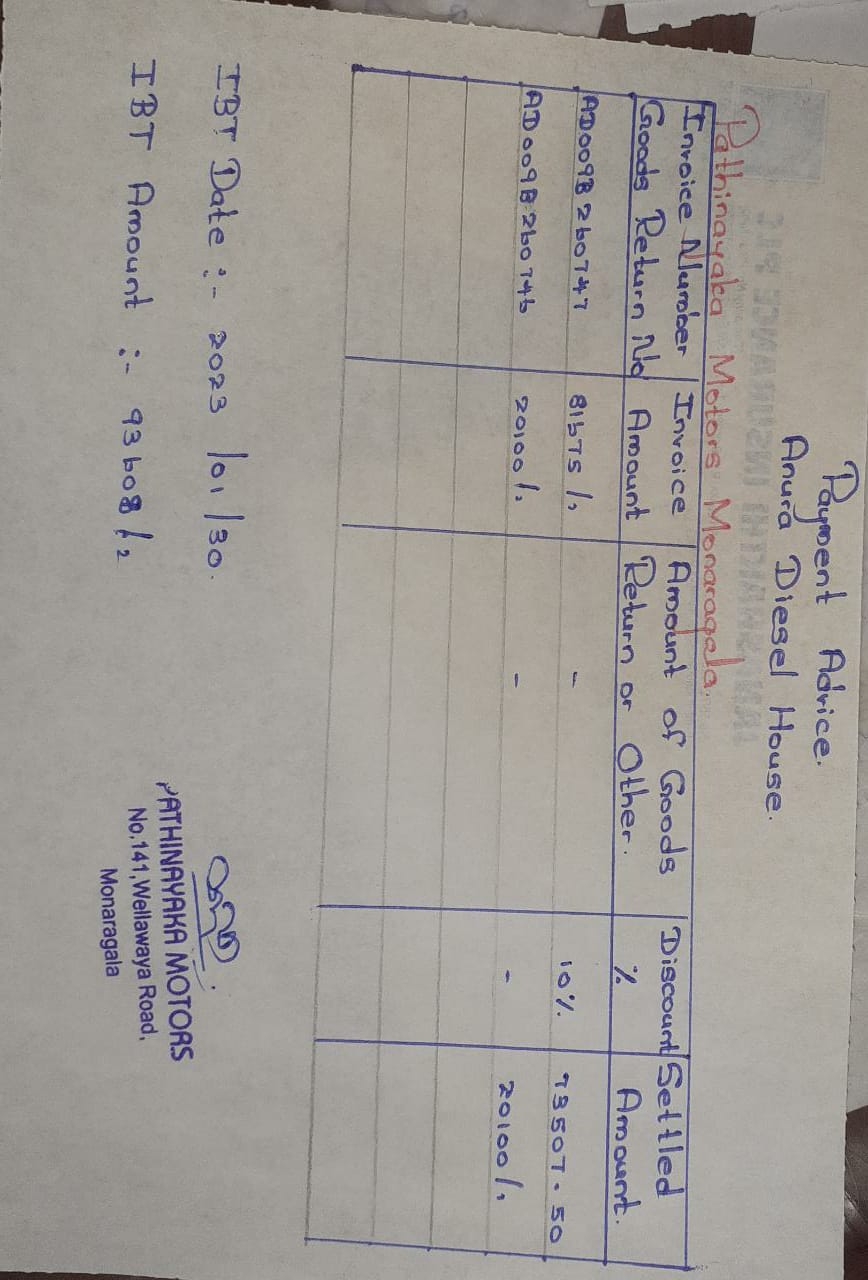 Payment Advice.
Anura Diesel House.
Pathinayaka Motors Monaragala.
Invoice Number Invoice Amount of Goods Discount Settled
Goods Return No Amount Return or Other. % Amount.
AD009B260747 81675/= - 10% 73507.50
AD009B260746 20100/= - - 20100/=
IBT Date :- 2023/01/30.
IBT Amount :- 93608/=
PATHINAYAKA MOTORS
No.141,Wellawaya Road,
Monaragala